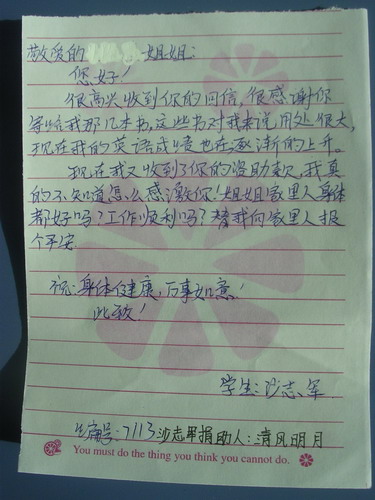 敬爱的 姐姐:
您好!
很高兴收到你的回信,很感谢你
寄给我那几本书,这些书对我来说用处很大,
现在我的英语成绩也在逐渐的上升。
现在我又收到了你的资助款,我真
的不知道怎么感激你!姐姐家里人身体
都好吗?工作顺利吗?替我向家里人报
个平安.
祝:身体健康,万事如意!
此致!
学生:沙志军
生编号:7113沙志军捐助人:清风明月
You must do the thing you think you cannot do.